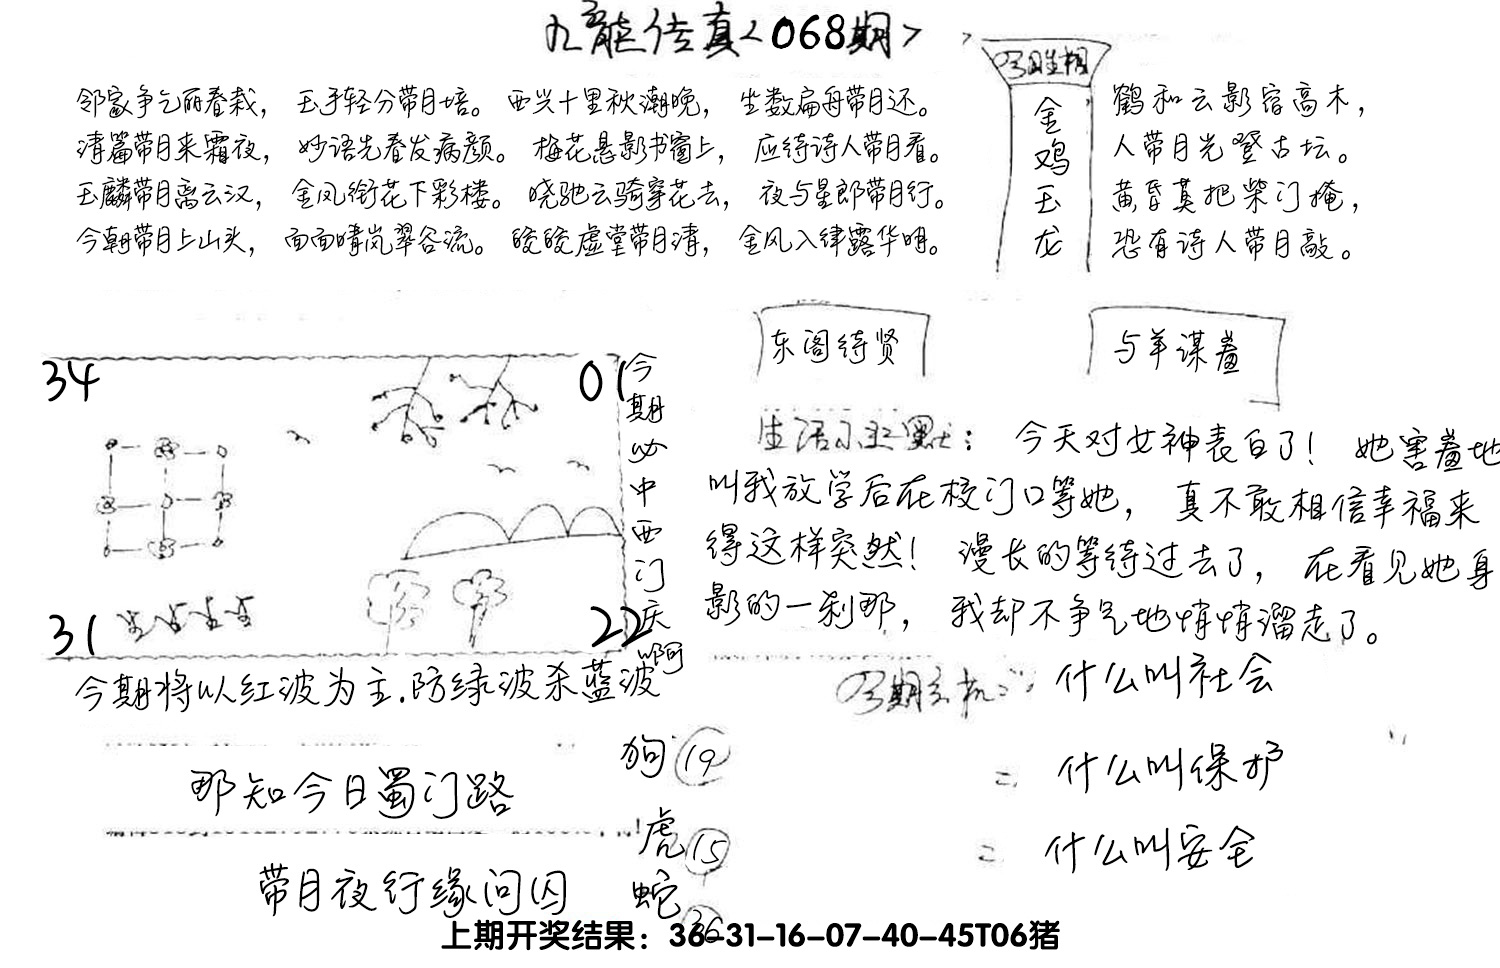 九龙传真<068期>
邻家争乞丽春栽， 玉手轻分带月培。 西兴十里秋潮晚， 生数扁舟带月还。
清篇带月来霜夜， 妙语先春发病颜。 梅花悬影书窗上， 应待诗人带月看。
玉麟带月离云汉， 金凤衔花下彩楼。 晓驰云骑穿花去， 夜与星郎带月行。
今朝带月上山头， 面面晴岚翠谷流。 皎皎虚堂带月清， 金风入律露华明。
今日生相
金鸡玉龙
鹤和云影宿高木，
人带月光登古坛。
黄昏莫把柴门掩，
恐有诗人带月敲。
东阁待贤
与羊谋羞
34
01
31
22
今期必中西门庆啊
今期将以红波为主.防绿波杀蓝波
生活小幽默： 今天对女神表白了！ 她害羞地
叫我放学后在校门口等她， 真不敢相信幸福来
得这样突然！ 漫长的等待过去了， 在看见她身
影的一刹那， 我却不争气地悄悄溜走了。
今期玄机： 什么叫社会
= 什么叫保护
= 什么叫安全
那知今日蜀门路
带月夜行缘问囚
狗 19
虎 15
蛇 36
上期开奖结果：36-31-16-07-40-45T06猪